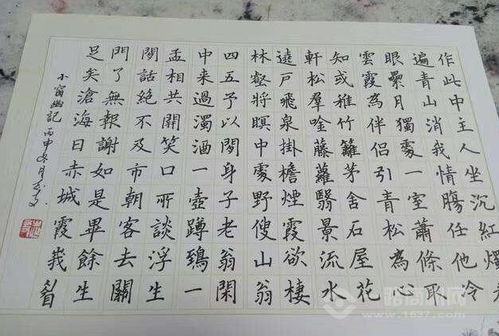 作此中主人坐沉紅燭
遍青山消我情腸任他冷
眼縈月獨處一室蕭條取
雲霞為伴侶引青松為心
知或稚竹籬茅舍石屋花
軒松羣唫藤蘿翳景流水
遶戶飛泉掛檐煙霞欲棲
林壑將瞑中處野叟山翁
四五予以閒身子老翁閑
中来過濁酒一壺蹲鴟一
盂相共開笑口所談浮生
閒話絕不及市朝客去關
門了無報謝如是畢餘生
足矣滄海日赤城霞莪眉
小窗幽記 丙申
www.1637.com